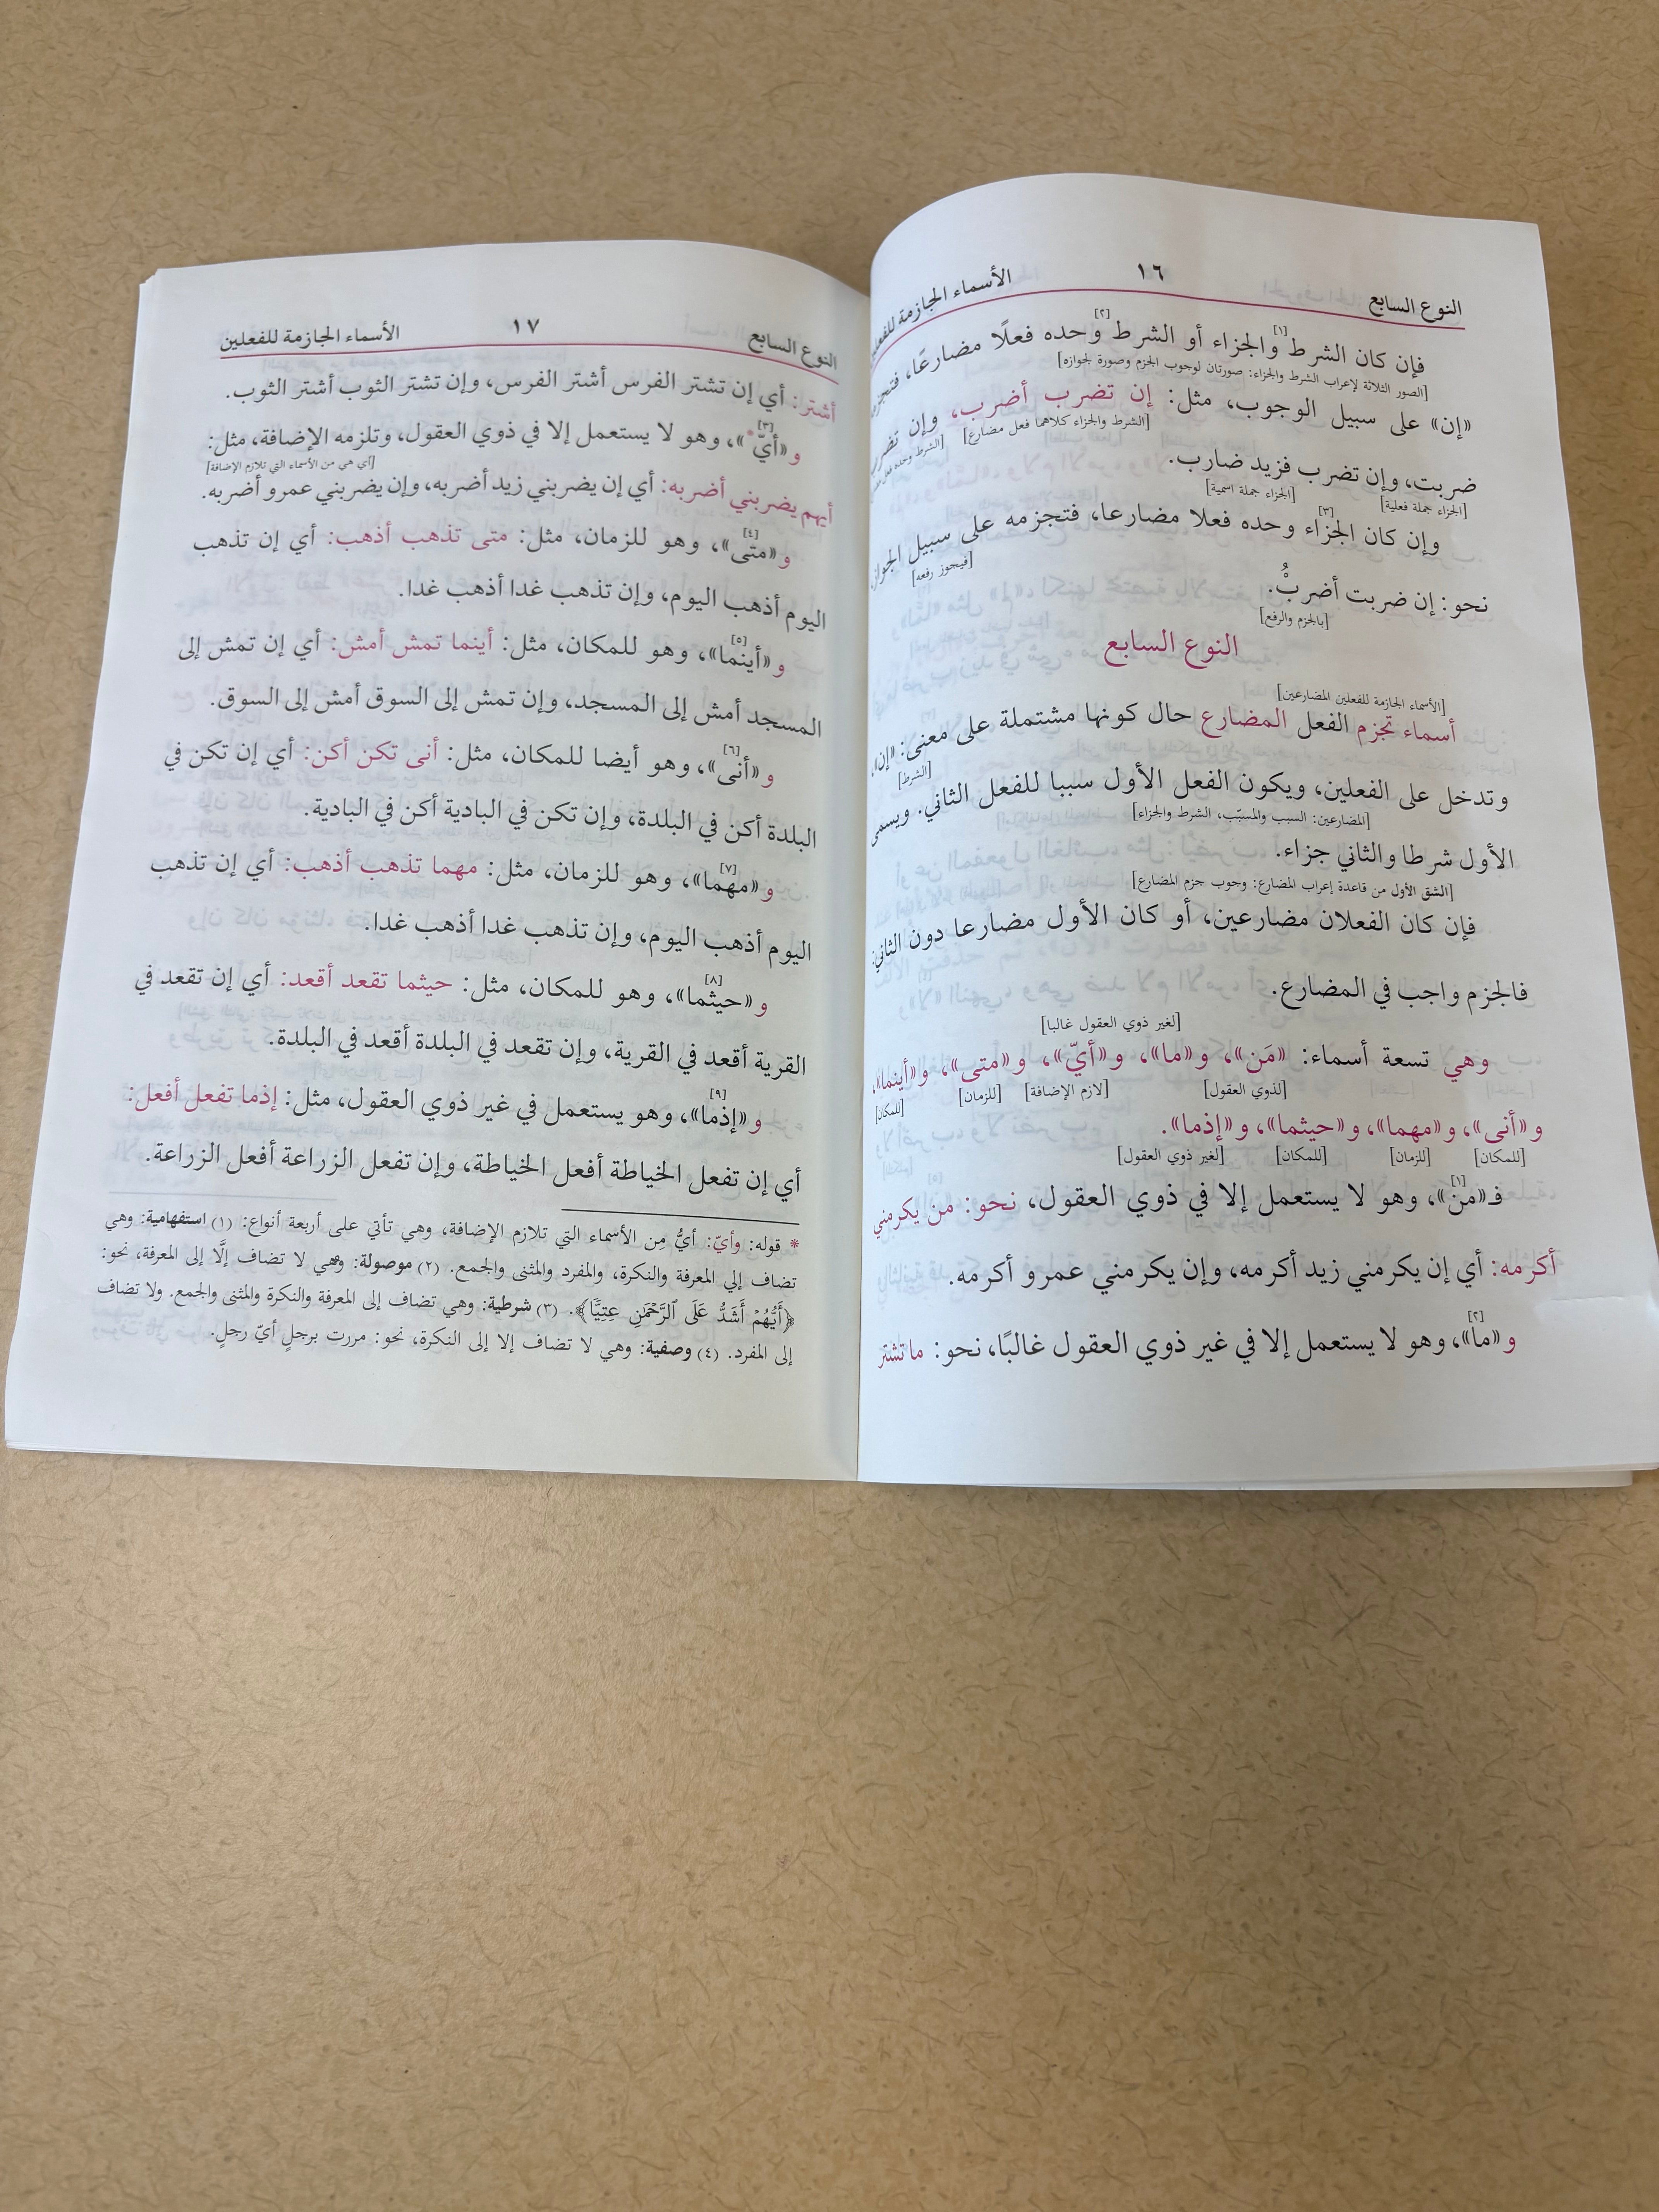 النوع السابع ١٦ الأسماء الجازمة للفعلين
[١] [٢]
فإن كان الشرط والجزاء أو الشرط وحده فعلًا مضارعًا،
[الصور الثلاثة لإعراب الشرط والجزاء: صورتان لوجوب الجزم وصورة لجوازه]
«إن» على سبيل الوجوب، مثل: إن تضرب أضرب، وإن تضرب
[الشرط والجزاء كلاهما فعل مضارع] [الشرط وحده فعل
ضربت، وإن تضرب فزيد ضارب.
[الجزاء جملة فعلية] [الجزاء جملة اسمية]
[٣]
وإن كان الجزاء وحده فعلا مضارعا، فتجزمه على سبيل الجواز،
[فيجوز رفعه]
نحو: إن ضربت أضربْ.ُ
[بالجزم والرفع]
النوع السابع
[الأسماء الجازمة للفعلين المضارعين]
أسماء تجزم الفعل المضارع حال كونها مشتملة على معنى: «إن»،
[الشرط]
وتدخل على الفعلين، ويكون الفعل الأول سببا للفعل الثاني. ويسمى
[المضارعين: السبب والمسبّب، الشرط والجزاء]
الأول شرطا والثاني جزاء.
[الشق الأول من قاعدة إعراب المضارع: وجوب جزم المضارع]
فإن كان الفعلان مضارعين، أو كان الأول مضارعا دون الثاني:
فالجزم واجب في المضارع.
[لغير ذوي العقول غالبا]
وهي تسعة أسماء: «مَن»، و«ما»، و«أيّ»، و«متى»، و«أينما»،
[لذوي العقول] [لازم الإضافة] [للزمان] [للمكان]
و«أنى»، و«مهما»، و«حيثما»، و«إذما».
[للمكان] [للزمان] [للمكان] [لغير ذوي العقول]
[١]
فـ«مَن»، وهو لا يستعمل إلا في ذوي العقول، نحو: من يكرمني
أكرمه: أي إن يكرمني زيد أكرمه، وإن يكرمني عمرو أكرمه.
[٢]
و«ما»، وهو لا يستعمل إلا في غير ذوي العقول غالبًا، نحو: ما تشتر
النوع السابع ١٧ الأسماء الجازمة للفعلين
أشتر: أي إن تشتر الفرس أشتر الفرس، وإن تشتر الثوب أشتر الثوب.
[٣]
و«أيّ*»، وهو لا يستعمل إلا في ذوي العقول، وتلزمه الإضافة، مثل:
[أي هي من الأسماء التي تلازم الإضافة]
أيهم يضربني أضربه: أي إن يضربني زيد أضربه، وإن يضربني عمرو أضربه.
[٤]
و«متى»، وهو للزمان، مثل: متى تذهب أذهب: أي إن تذهب
اليوم أذهب اليوم، وإن تذهب غدا أذهب غدا.
[٥]
و«أينما»، وهو للمكان، مثل: أينما تمش أمش: أي إن تمش إلى
المسجد أمش إلى المسجد، وإن تمش إلى السوق أمش إلى السوق.
[٦]
و«أنى»، وهو أيضا للمكان، مثل: أنى تكن أكن: أي إن تكن في
البلدة أكن في البلدة، وإن تكن في البادية أكن في البادية.
[٧]
و«مهما»، وهو للزمان، مثل: مهما تذهب أذهب: أي إن تذهب
اليوم أذهب اليوم، وإن تذهب غدا أذهب غدا.
[٨]
و«حيثما»، وهو للمكان، مثل: حيثما تقعد أقعد: أي إن تقعد في
القرية أقعد في القرية، وإن تقعد في البلدة أقعد في البلدة.
[٩]
و«إذما»، وهو يستعمل في غير ذوي العقول، مثل: إذما تفعل أفعل:
أي إن تفعل الخياطة أفعل الخياطة، وإن تفعل الزراعة أفعل الزراعة.
* قوله: وأيّ: أيُّ مِن الأسماء التي تلازم الإضافة، وهي تأتي على أربعة أنواع: (١) استفهامية: وهي
تضاف إلي المعرفة والنكرة، والمفرد والمثنى والجمع. (٢) موصولة: وهي لا تضاف إلَّا إلى المعرفة، نحو:
﴿أَيُّهُمۡ أَشَدُّ عَلَى ٱلرَّحۡمَٰنِ عِتِيّٗا﴾. (٣) شرطية: وهي تضاف إلى المعرفة والنكرة والمثنى والجمع. ولا تضاف
إلى المفرد. (٤) وصفية: وهي لا تضاف إلا إلى النكرة، نحو: مررت برجلٍ أيّ رجلٍ.